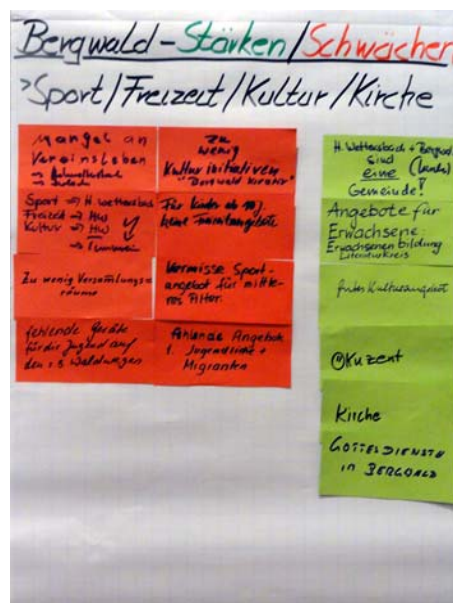 Bergwald-Stärken/Schwächen
>Sport/Freizeit/Kultur/Kirche
Mangel an
Vereinsleben
Sport → H. Wettersbach
Freizeit → HW
Kultur → HW
Zu wenig Versammlungs=
räume
fehlende Geräte
für die Jugend auf
den
zu
wenig
Kulturinitiativen
"Bergwald kreativ"
Für Kinder ab 10 J.
keine
Vermisse Sport-
angebot für mittle-
res Alter.
Fehlende Angebote
f. Jugendliche +
Migranten
H. Wettersbach + Bergwald
sind
eine
Gemeinde!
Angebote für
Erwachsene:
Erwachsenenbildung
Literaturkreis
gutes Kulturangebot
Kirche
GOTTESDIENSTE
in BERGWALD